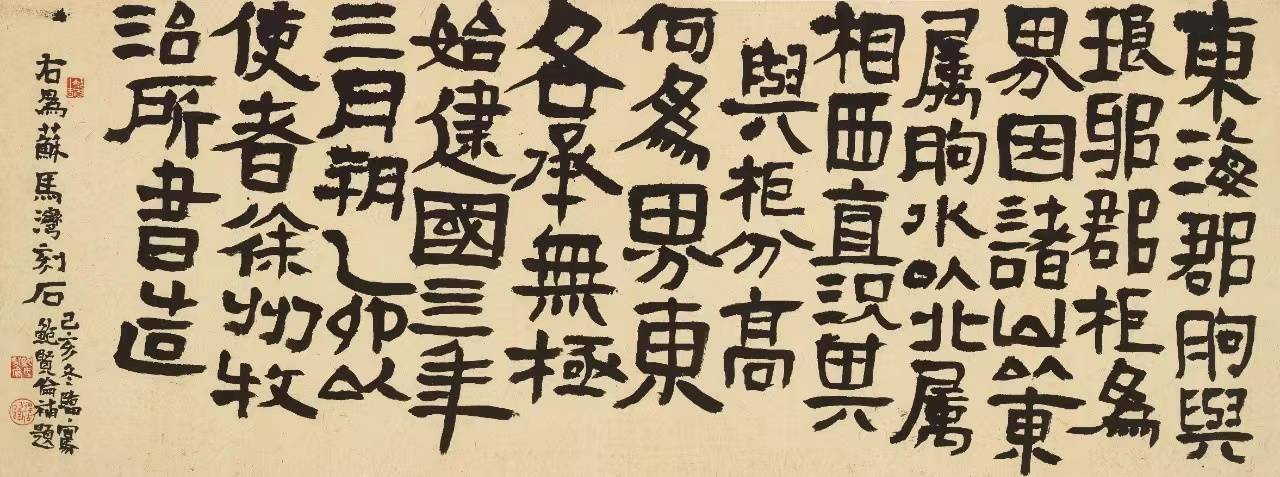 東海郡朐與
琅邪郡柜爲
界因諸山以東
属朐水以北属
相西直況其
與柜分高
何爲界東
各承無極
始建國三年
三月朔乙卯以
使者徐州牧
治所書造
右爲蘇馬灣刻石
己亥冬臨寫
鮑賢倫補題